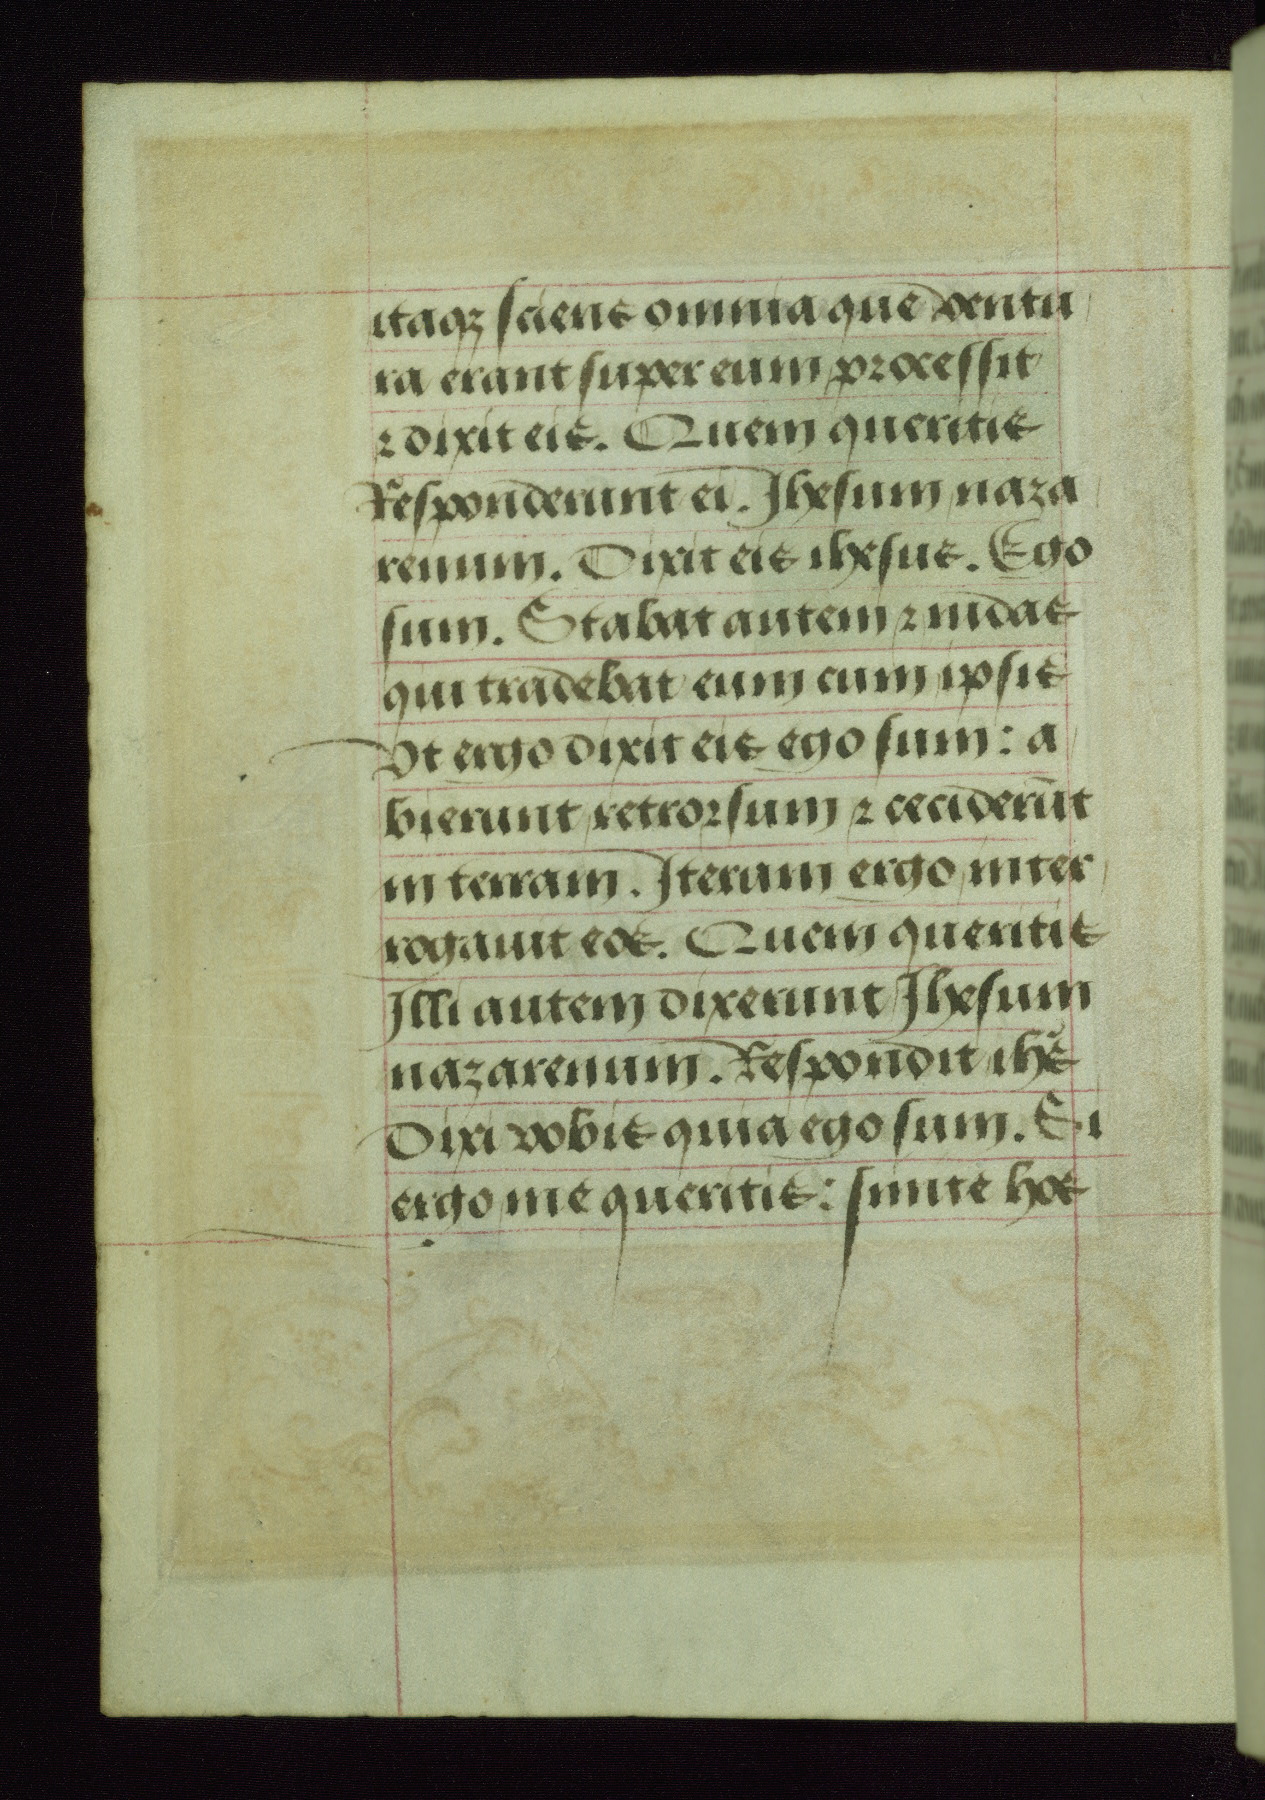 itaqꝫ sciens omnia que ventu
ra erant super eum processit
⁊ dixit eis. Quem queritis
Responderunt ei. Jhesum naza
renum. Dixit eis ihesus. Ego
sum. Stabat autem ⁊ iudas
qui tradebat eum cum ipsis
Vt ergo dixit eis ego sum: a
bierunt retrorsum ⁊ ceciderūt
in terram. Iterum ergo inter
rogauit eos. Quem queritis
Illi autem dixerunt Jhesum
nazarenum. Respondit ihs̄
Dixi vobis quia ego sum. Si
ergo me queritis: sinite hos